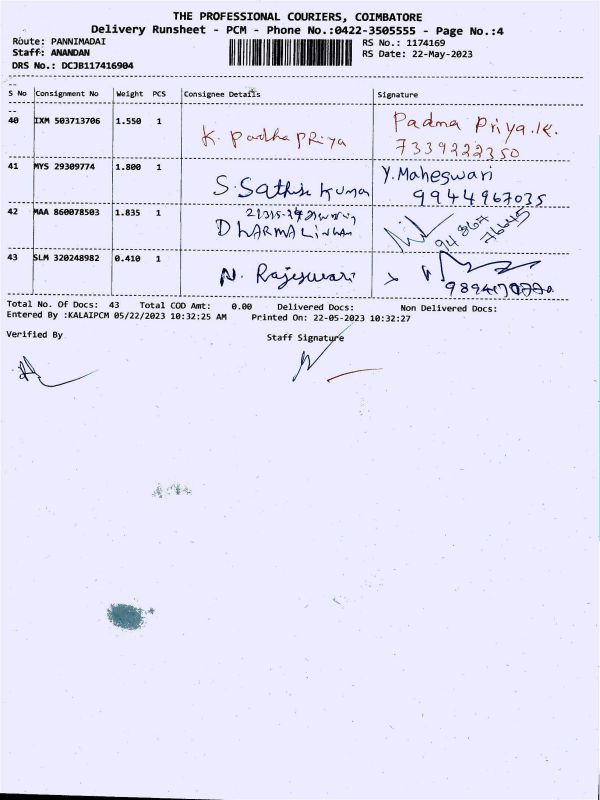 THE PROFESSIONAL COURIERS, COIMBATORE
Delivery Runsheet - PCM - Phone No.:0422-3505555 - Page No.:4
Route: PANNIMADAI
RS No.: 1174169
Staff: ANANDAN
RS Date: 22-May-2023
DRS No.: DCJB117416904
S No Consignment No Weight PCS Consignee Details Signature
40 IXM 503713706 1.550 1 K. Padhapriya Padma Priya.K.
7339222350
41 MYS 29309774 1.800 1 S. Sathis Kumar Y. Maheswari
9944967035
42 MAA 860078503 1.835 1
DHARMALINGAM 94 867 76645
43 SLM 320248982 0.410 1 N. Rajeswari
Total No. Of Docs: 43 Total COD Amt: 0.00 Delivered Docs: Non Delivered Docs:
Entered By :KALAIPCM 05/22/2023 10:32:25 AM Printed On: 22-05-2023 10:32:27
Verified By Staff Signature